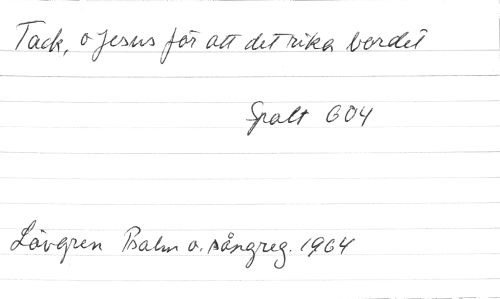 Tack, o Jesus för att det rika bordet
Spalt 604
Lövgren Psalm o. sångreg. 1964